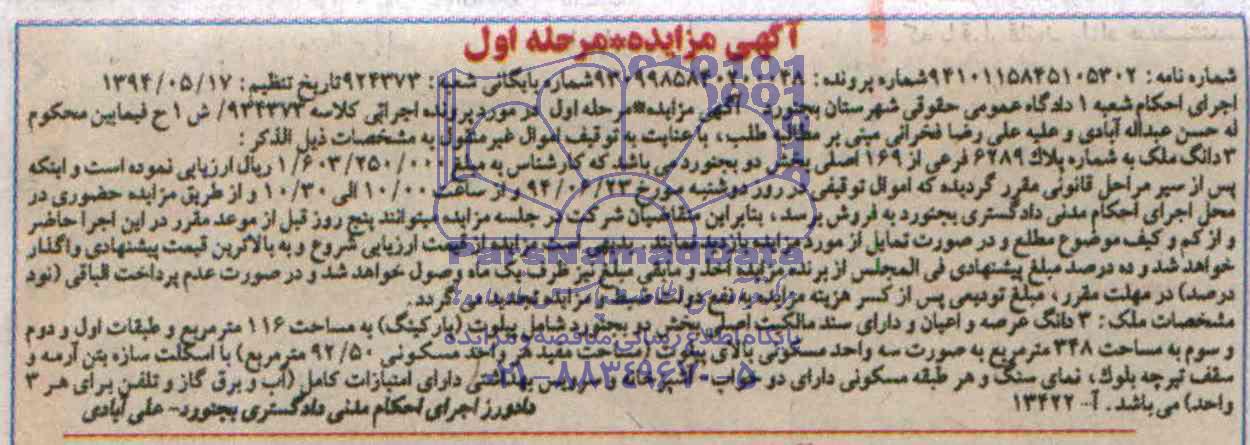 آگهی مزایده*مرحله اول
شماره نامه : ۹۴۱۰۱۱۵۸۴۵۱۰۵۳۰۲ شماره پرونده : شماره بایگانی شعبه : ۹۲۴۳۷۳ تاریخ تنظیم : ۱۳۹۴/۰۵/۱۷
اجرای احکام شعبه ۱ دادگاه عمومی حقوقی شهرستان بجنورد آگهی مزایده*مرحله اول در مورد پرونده اجرائی کلاسه ۹۳۴۳۷۳/ ش ۱ ح فیمابین محکوم
له حسن عبداله آبادی و علیه علی رضا فخرانی مبنی بر مطالبه طلب ، با عنایت به توقیف اموال غیرمنقول به مشخصات ذیل الذکر :
۳ دانگ ملک به شماره پلاک ۶۲۸۹ فرعی از ۱۶۹ اصلی بخش دو بجنورد می باشد که کارشناس به مبلغ ۱/۶۰۳/۲۵۰/۰۰۰ ریال ارزیابی نموده است و اینکه
پس از سیر مراحل قانونی مقرر گردیده که اموال توقیفی در روز دوشنبه مورخ ۹۴/۰۶/۲۳ و از ساعت ۱۰/۰۰ الی ۱۰/۳۰ و از طریق مزایده حضوری در
محل اجرای احکام مدنی دادگستری بجنورد به فروش برسد ، بنابراین متقاضیان شرکت در جلسه مزایده میتوانند پنج روز قبل از موعد مقرر در این اجرا حاضر
و از کم و کیف موضوع مطلع و در صورت تمایل از مورد مزایده بازدید نمایند . بدیهی است مزایده از قیمت ارزیابی شروع و به بالاترین قیمت پیشنهادی واگذار
خواهد شد و ده درصد مبلغ پیشنهادی فی المجلس از برنده مزایده اخذ و مابقی مبلغ نیز ظرف یک ماه وصول خواهد شد و در صورت عدم پرداخت الباقی (نود
درصد) در مهلت مقرر ، مبلغ تودیعی پس از کسر هزینه مزایده به نفع دولت ضبط و مزایده تجدید می گردد .
مشخصات ملک : ۳ دانگ عرصه و اعیان و دارای سند مالکیت اصلی بخش دو بجنورد شامل پیلوت (پارکینگ) به مساحت ۱۱۶ مترمربع و طبقات اول و دوم
و سوم به مساحت ۳۴۸ مترمربع به صورت سه واحد مسکونی بالای پیلوت (مساحت مفید هر واحد مسکونی ۹۲/۵۰ مترمربع) با اسکلت سازه بتن آرمه و
سقف تیرچه بلوک، نمای سنگ و هر طبقه مسکونی دارای دو خواب ، آشپزخانه و سرویس بهداشتی دارای امتیازات کامل (آب و برق گاز و تلفن برای هر ۳
واحد) می باشد . آ- ۱۳۴۲۲
دادورز اجرای احکام مدنی دادگستری بجنورد- علی آبادی
ParsNamadData
پایگاه اطلاع رسانی مناقصه و مزایده
۰۲۱-۸۸۳۴۹۶۷۰-۵